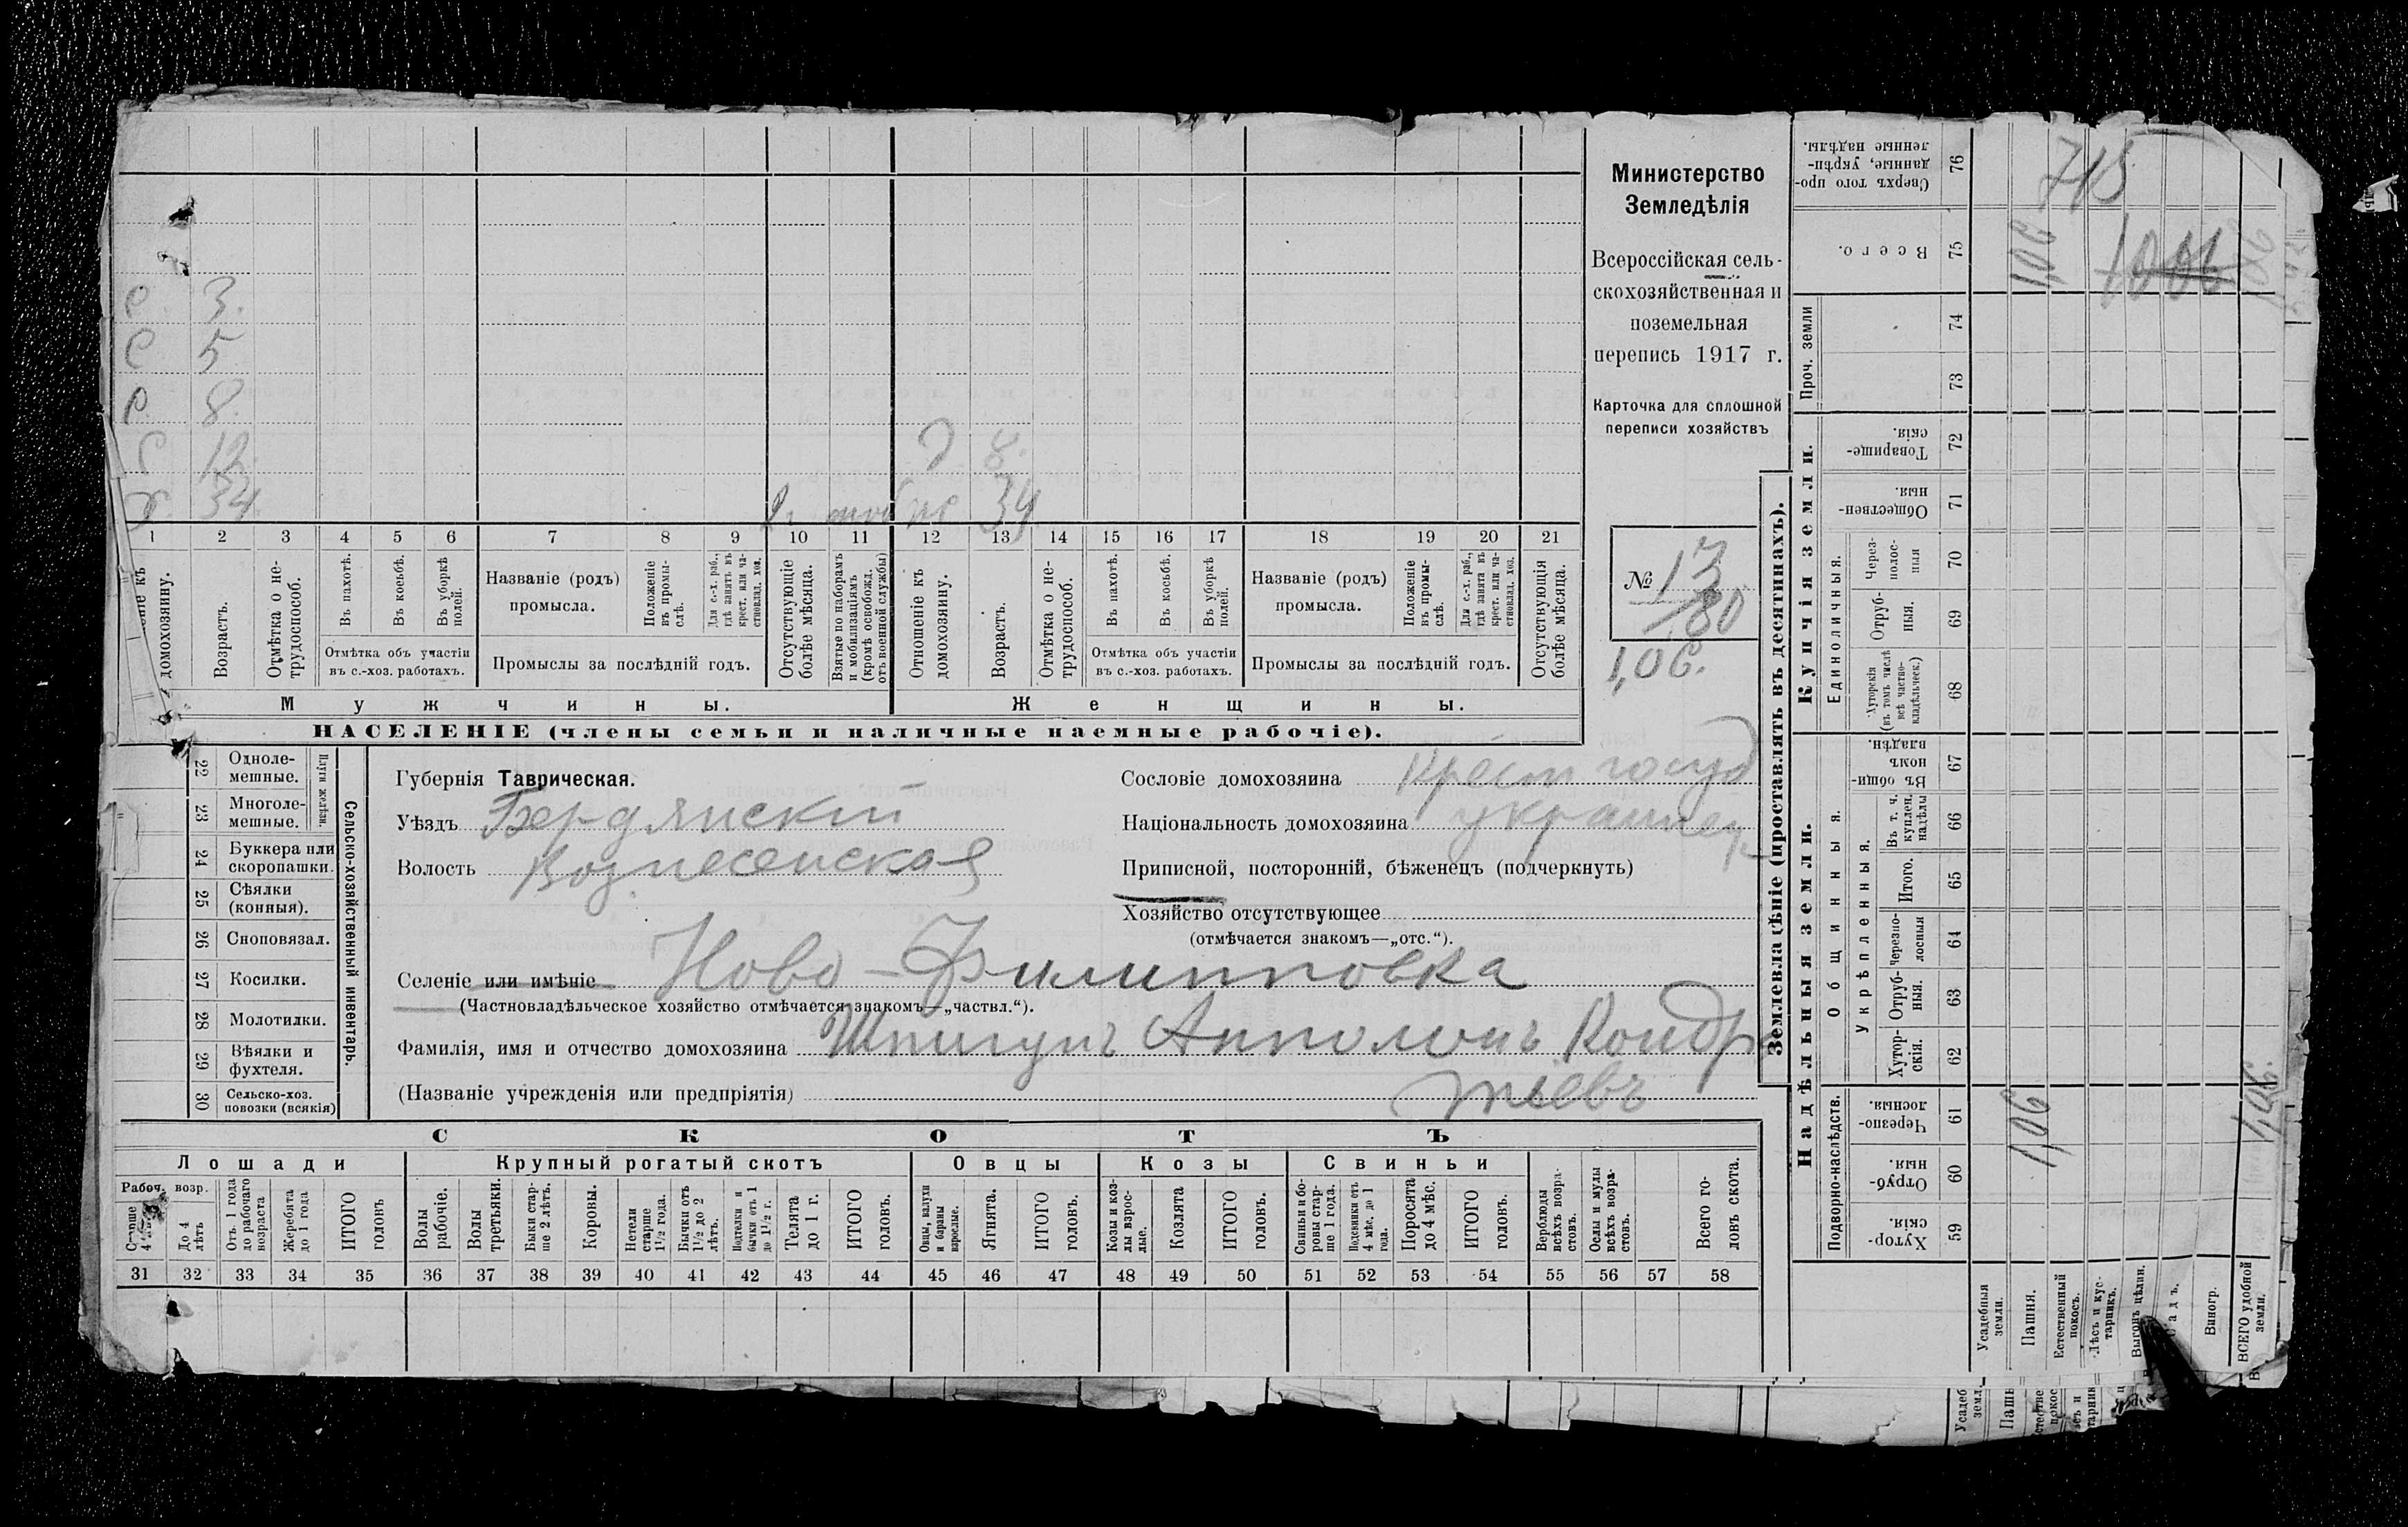 Министерство
Земледѣлія
Всероссійская сель-
скохозяйственная и
поземельная
перепись 1917 г.
Карточка для сплошной
переписи хозяйствъ
№ 13
180
1,06.
С 3.
С 5
С 8.
С 12.
Х. 34.
Д 8.
34.
1 2 3 4 5 6 7 8 9 10 11 12 13 14 15 16 17 18 19 20 21
домохозяину.
Возрастъ.
Отмѣтка о не-
трудоспособ.
Въ пахотѣ.
Въ косьбѣ.
Въ уборкѣ
полей.
Отмѣтка объ участіи
въ с.-хоз. работахъ.
Названіе (родъ)
промысла.
Положеніе
въ промы-
слѣ.
Для с.-х. раб.,
гдѣ занятъ въ
крест. или ча-
стновлад. хоз.
Промыслы за послѣдній годъ.
Отсутствующіе
болѣе мѣсяца.
Взятые по наборамъ
и мобилизаціямъ
(кромѣ освобожд.
отъ военной службы)
Отношеніе къ
домохозяину.
Возрастъ.
Отмѣтка о не-
трудоспособ.
Въ пахотѣ.
Въ косьбѣ.
Въ уборкѣ
полей.
Отмѣтка объ участіи
въ с.-хоз. работахъ.
Названіе (родъ)
промысла.
Положеніе
въ промы-
слѣ.
Для с.-х. раб.,
гдѣ занята въ
крест. или ча-
стновлад. хоз.
Промыслы за послѣдній годъ.
Отсутствующія
болѣе мѣсяца.
Мужчины.
Женщины.
НАСЕЛЕНІЕ (члены семьи и наличные наемные рабочіе).
Сельско-хозяйственный инвентарь.
Плуги желѣзн.
22 Одноле-
мешные.
23 Многоле-
мешные.
24 Буккера или
скоропашки.
25 Сѣялки
(конныя).
26 Сноповязал.
27 Косилки.
28 Молотилки.
29 Вѣялки и
фухтеля.
30 Сельско-хоз.
повозки (всякія)
Губернія Таврическая.
Уѣздъ Бердянскій
Волость Вознесенская
Сословіе домохозяина Крест госуд
Національность домохозяина украинец
Приписной, посторонній, бѣженецъ (подчеркнуть)
Хозяйство отсутствующее
(отмѣчается знакомъ—„отс.“).
Селеніе или имѣніе Ново-Филипповка
(Частновладѣльческое хозяйство отмѣчается знакомъ—„частвл.“).
Фамилія, имя и отчество домохозяина Шпигунъ Апполонъ Кондра
тіевъ
(Названіе учрежденія или предпріятія)
СКОТЪ
Лошади
Крупный рогатый скотъ
Овцы
Козы
Свиньи
Рабоч. возр.
Старше
До 4
лѣтъ
Отъ 1 года
до рабочаго
возраста
Жеребята
до 1 года
ИТОГО
головъ
Волы
рабочіе.
Волы
третьяки.
Быки стар-
ше 2 лѣтъ.
Коровы.
Нетели
старше
1½ года.
Бычки отъ
1½ до 2
лѣтъ.
Подтелки и
бычки отъ 1
до 1½ г.
Телята
до 1 г.
ИТОГО
головъ.
Овцы, валухи
и бараны
взрослые.
Ягнята.
ИТОГО
головъ.
Козы и коз-
лы взрос-
лые.
Козлята
ИТОГО
головъ.
Свиньи и бо-
ровы стар-
ше 1 года.
Подсвинки отъ
4 мѣс. до 1
года.
Поросята
до 4 мѣс.
ИТОГО
головъ.
Верблюды
всѣхъ возра-
стовъ.
Ослы и мулы
всѣхъ возра-
стовъ.
Всего го-
ловъ скота.
31 32 33 34 35 36 37 38 39 40 41 42 43 44 45 46 47 48 49 50 51 52 53 54 55 56 57 58
Землевладѣніе (проставлять въ десятинахъ).
Купчія земли.
Надѣльныя земли.
Проч. земли
Единоличныя.
Общинныя.
Укрѣпленныя.
Подворно-наслѣдств.
Сверхъ того про-
данные, укрѣп-
ленные надѣлы. 76
Всего. 75
74
73
Товарище-
скія. 72
Обществен-
ныя. 71
Через-
полос-
ныя 70
Отруб-
ныя. 69
Хуторскія
(въ томъ числѣ
всѣ частно-
владѣльческ.) 68
Въ общи-
номъ
владѣн. 67
Въ т. ч.
куплен.
надѣлы 66
Итого. 65
Черезпо-
лосныя 64
Отруб-
ныя. 63
Хутор-
скія. 62
Черезпо-
лосныя. 61
Отруб-
ныя. 60
Хутор-
скія. 59
Усадебныя
земли.
Пашня.
Естественный
покосъ.
Лѣсъ и кус-
тарникъ.
Выгонъ цѣлин.
Садъ.
Виногр.
ВСЕГО удобной
земли.
1,06
1,06
1,06
1,06.